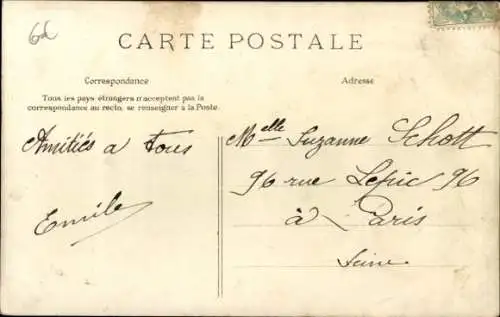 6d
CARTE POSTALE
Correspondance
Tous les pays étrangers n'acceptent pas la
correspondance au recto, se renseigner à la Poste.
Amitiés a tous
Emile
Adresse
Melle Suzanne Schott
96 rue Lepic 96
à Paris
Seine